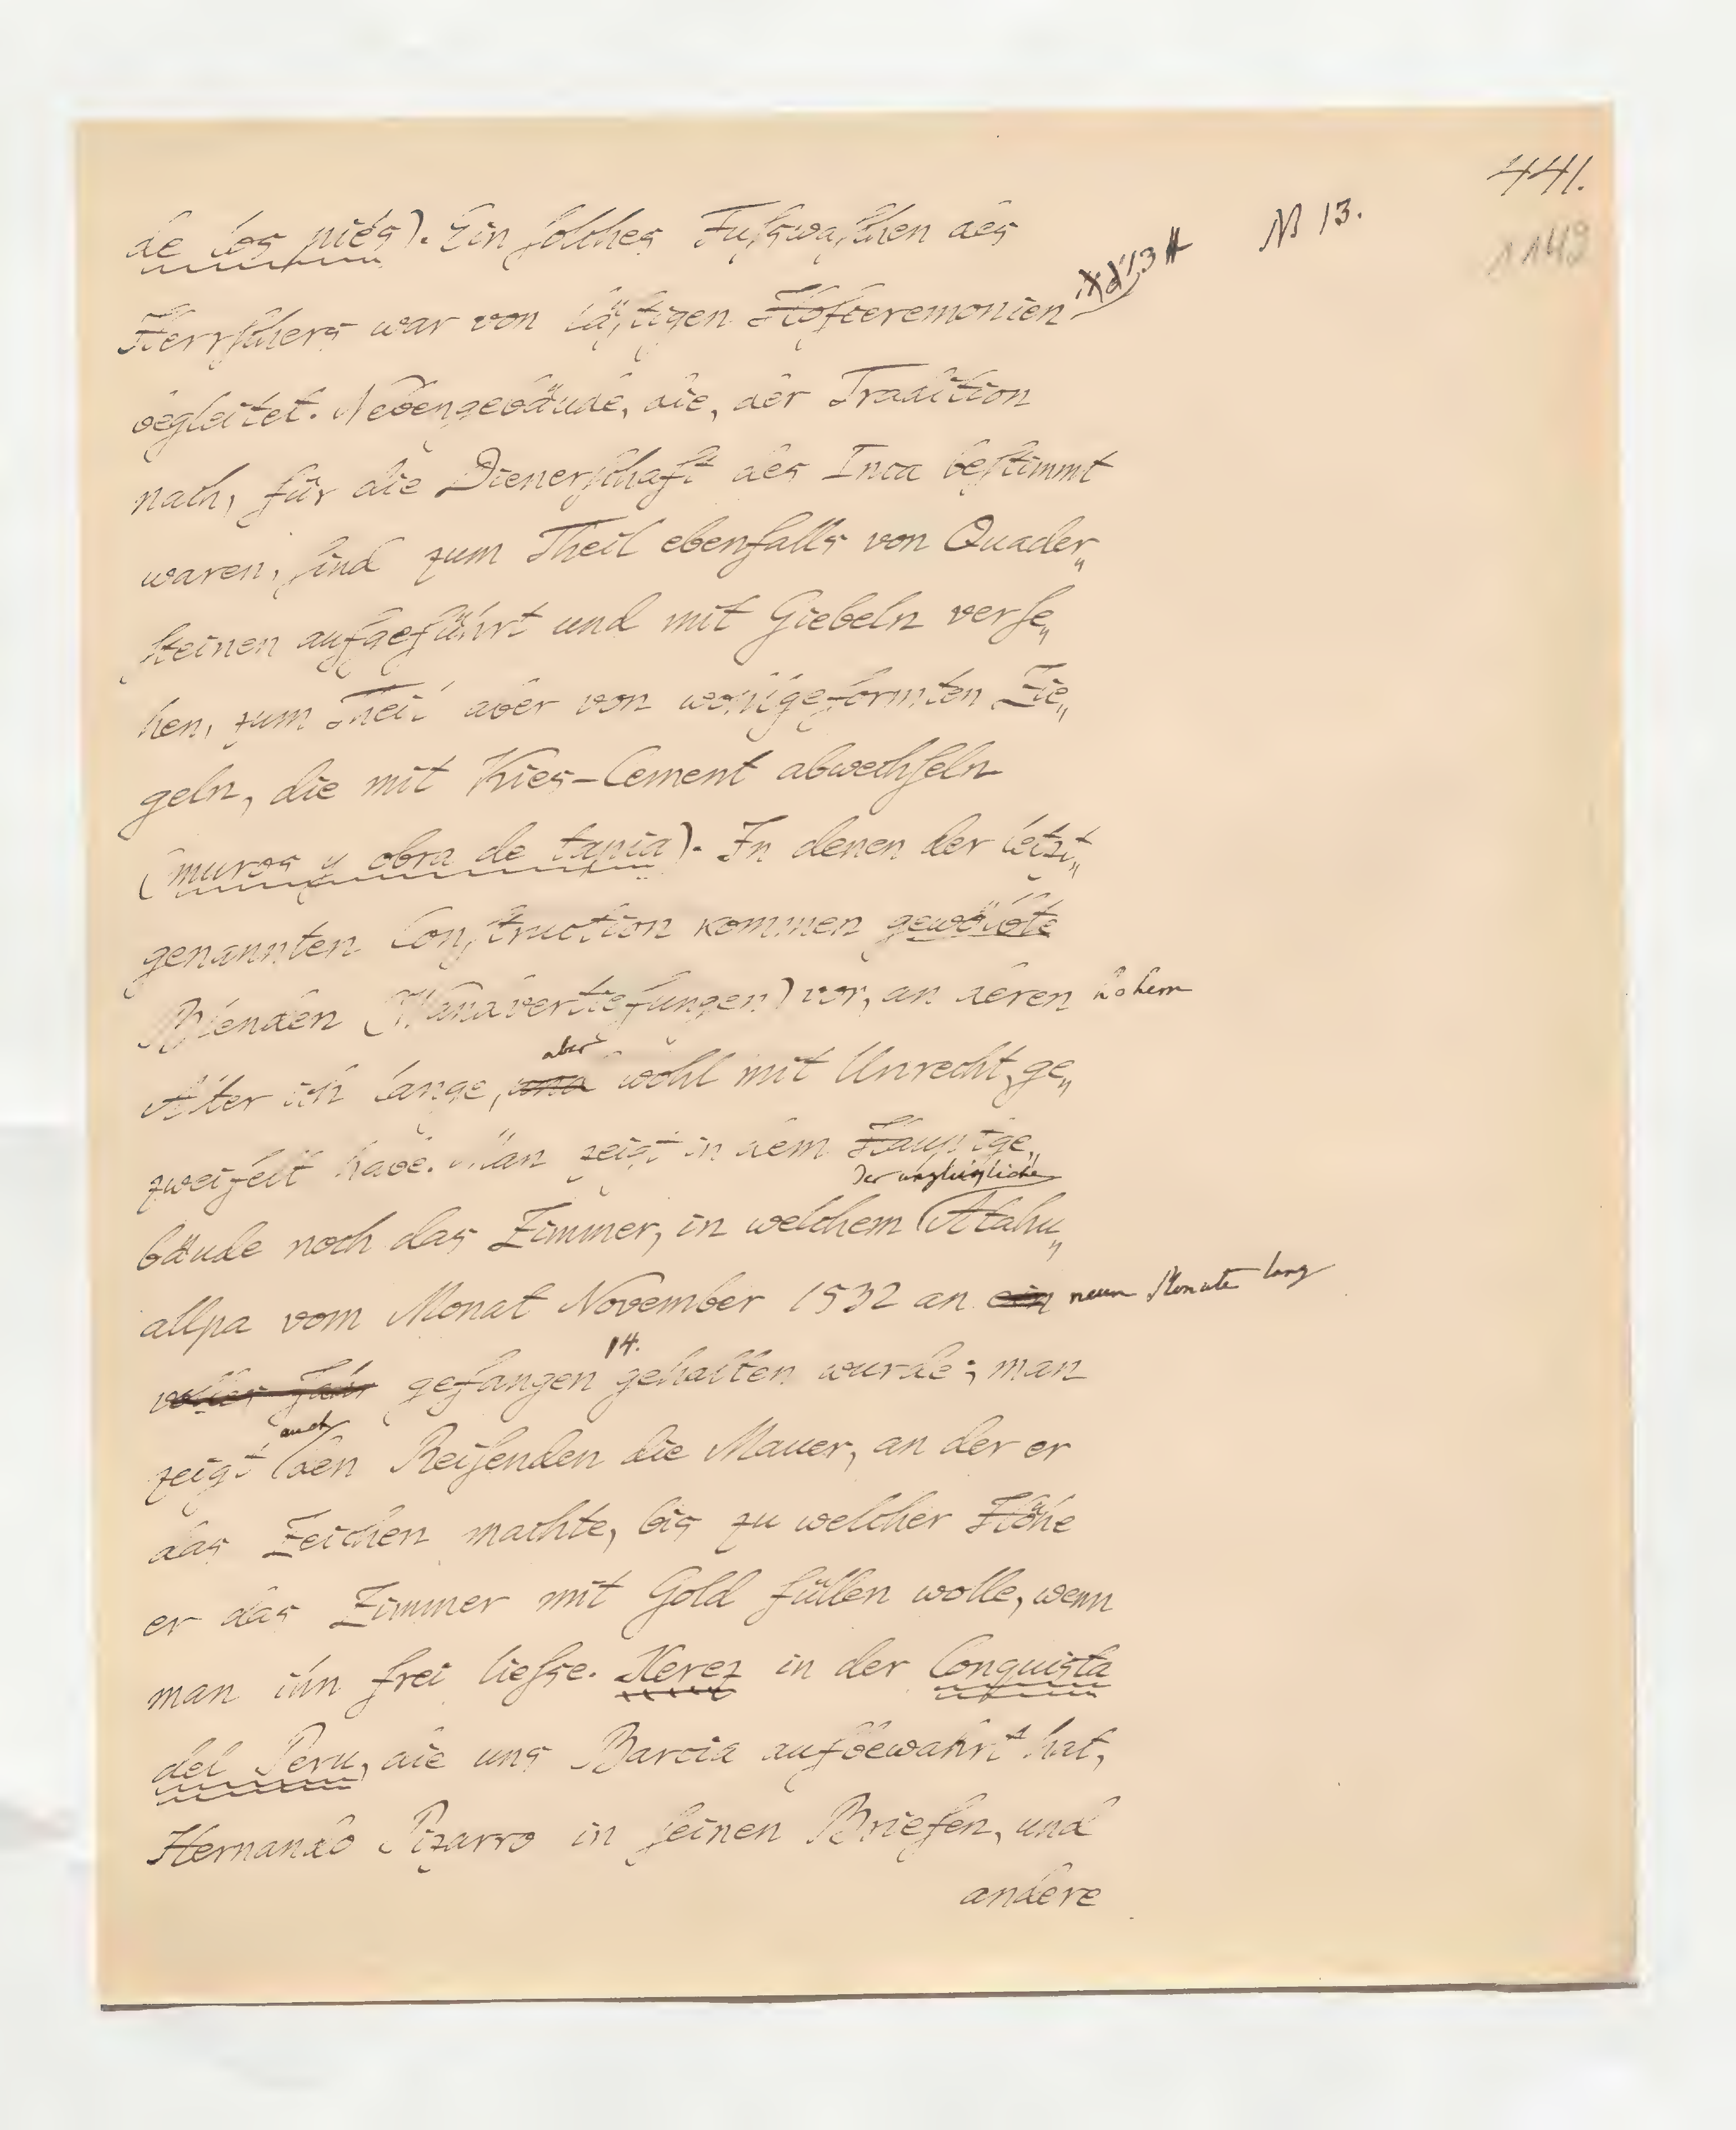 441.
N 13.
1149
de los piés). Ein solches Fußwaschen des
Herrschers war von lästigen Hofceremonien
begleitet. Nebengebäude, die, der Tradition
nach, für die Dienerschaft des Inca bestimmt
waren, sind zum Theil ebenfalls von Quader„
steinen aufgeführt und mit Giebeln verse„
hen, zum Theil aber von wohlgeformten Zie„
geln, die mit Kies-Cement abwechseln
(muros y obra de tapia). In denen der letzt„
genannten Construction kommen gewölbte
Blenden (Wandvertiefungen) vor, an deren hohem
aber
Alter ich lange, und wohl mit Unrecht, ge„
zweifelt habe. Man zeigt in dem Hauptge„
der unglückliche
bäude noch das Zimmer, in welchem Atahu„
allpa vom Monat November 1532 an ein neun Monate lang
14.
volles Jahr gefangen gehalten wurde; man
auch
zeigt den Reisenden die Mauer, an der er
das Zeichen machte, bis zu welcher Höhe
er das Zimmer mit Gold füllen wolle, wenn
man ihn frei ließe. Xerez in der Conquista
del Peru, die uns Barcia aufbewahrt hat,
Hernando Pizarro in seinen Briefen, und
andere